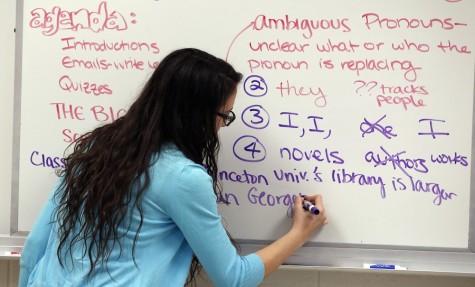 agenda:
Introductions
Emails - write
Quizzes
THE
Class
ambiguous Pronouns -
unclear what or who the
pronoun is replacing
② they ?? tracks
people
③ I, I, one I
④ novels authors works
Univ.'s library is larger